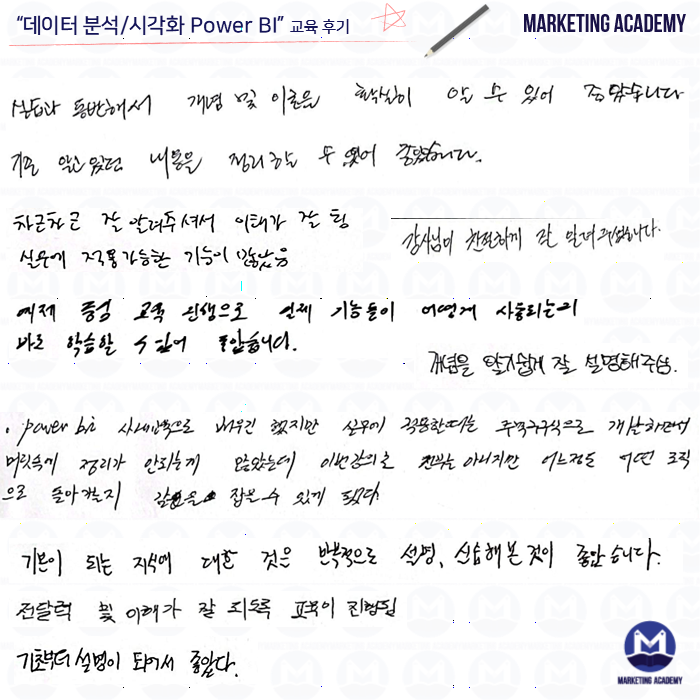 “데이터 분석/시각화 Power BI” 교육 후기
MARKETING ACADEMY
실습과 동반해서 개념 및 이론을 확실히 알 수 있어 좋았습니다
기존 알고 있었던 내용을 정리하는 수 있어 좋았습니다.
차근차근 잘 알려주셔서 이해가 잘 됨
실무에 적용가능한 기능이 많았음
강사님이 친절하게 잘 알려주셨습니다.
예제 중심 교육 방식으로 언제 기능들이 어떻게 사용되는지
바로 학습할 수 있어 좋았습니다.
개념을 알기쉽게 잘 설명해주심.
. power bi 사내교육으로 배우긴 했지만 실무에 적용할때는 주먹구구식으로 개발하면서
머릿속에 정리가 안되는게 많았는데 이번강의로 전부는 아니지만 어느정도 어떤 로직
으로 돌아가는지 감을 잡을 수 있게 됐다
기본이 되는 지식에 대한 것은 반복적으로 설명, 실습해본 것이 좋았습니다.
전달력 및 이해가 잘 되도록 교육이 진행됨
기초부터 설명이 되어서 좋았다.
MARKETING ACADEMY